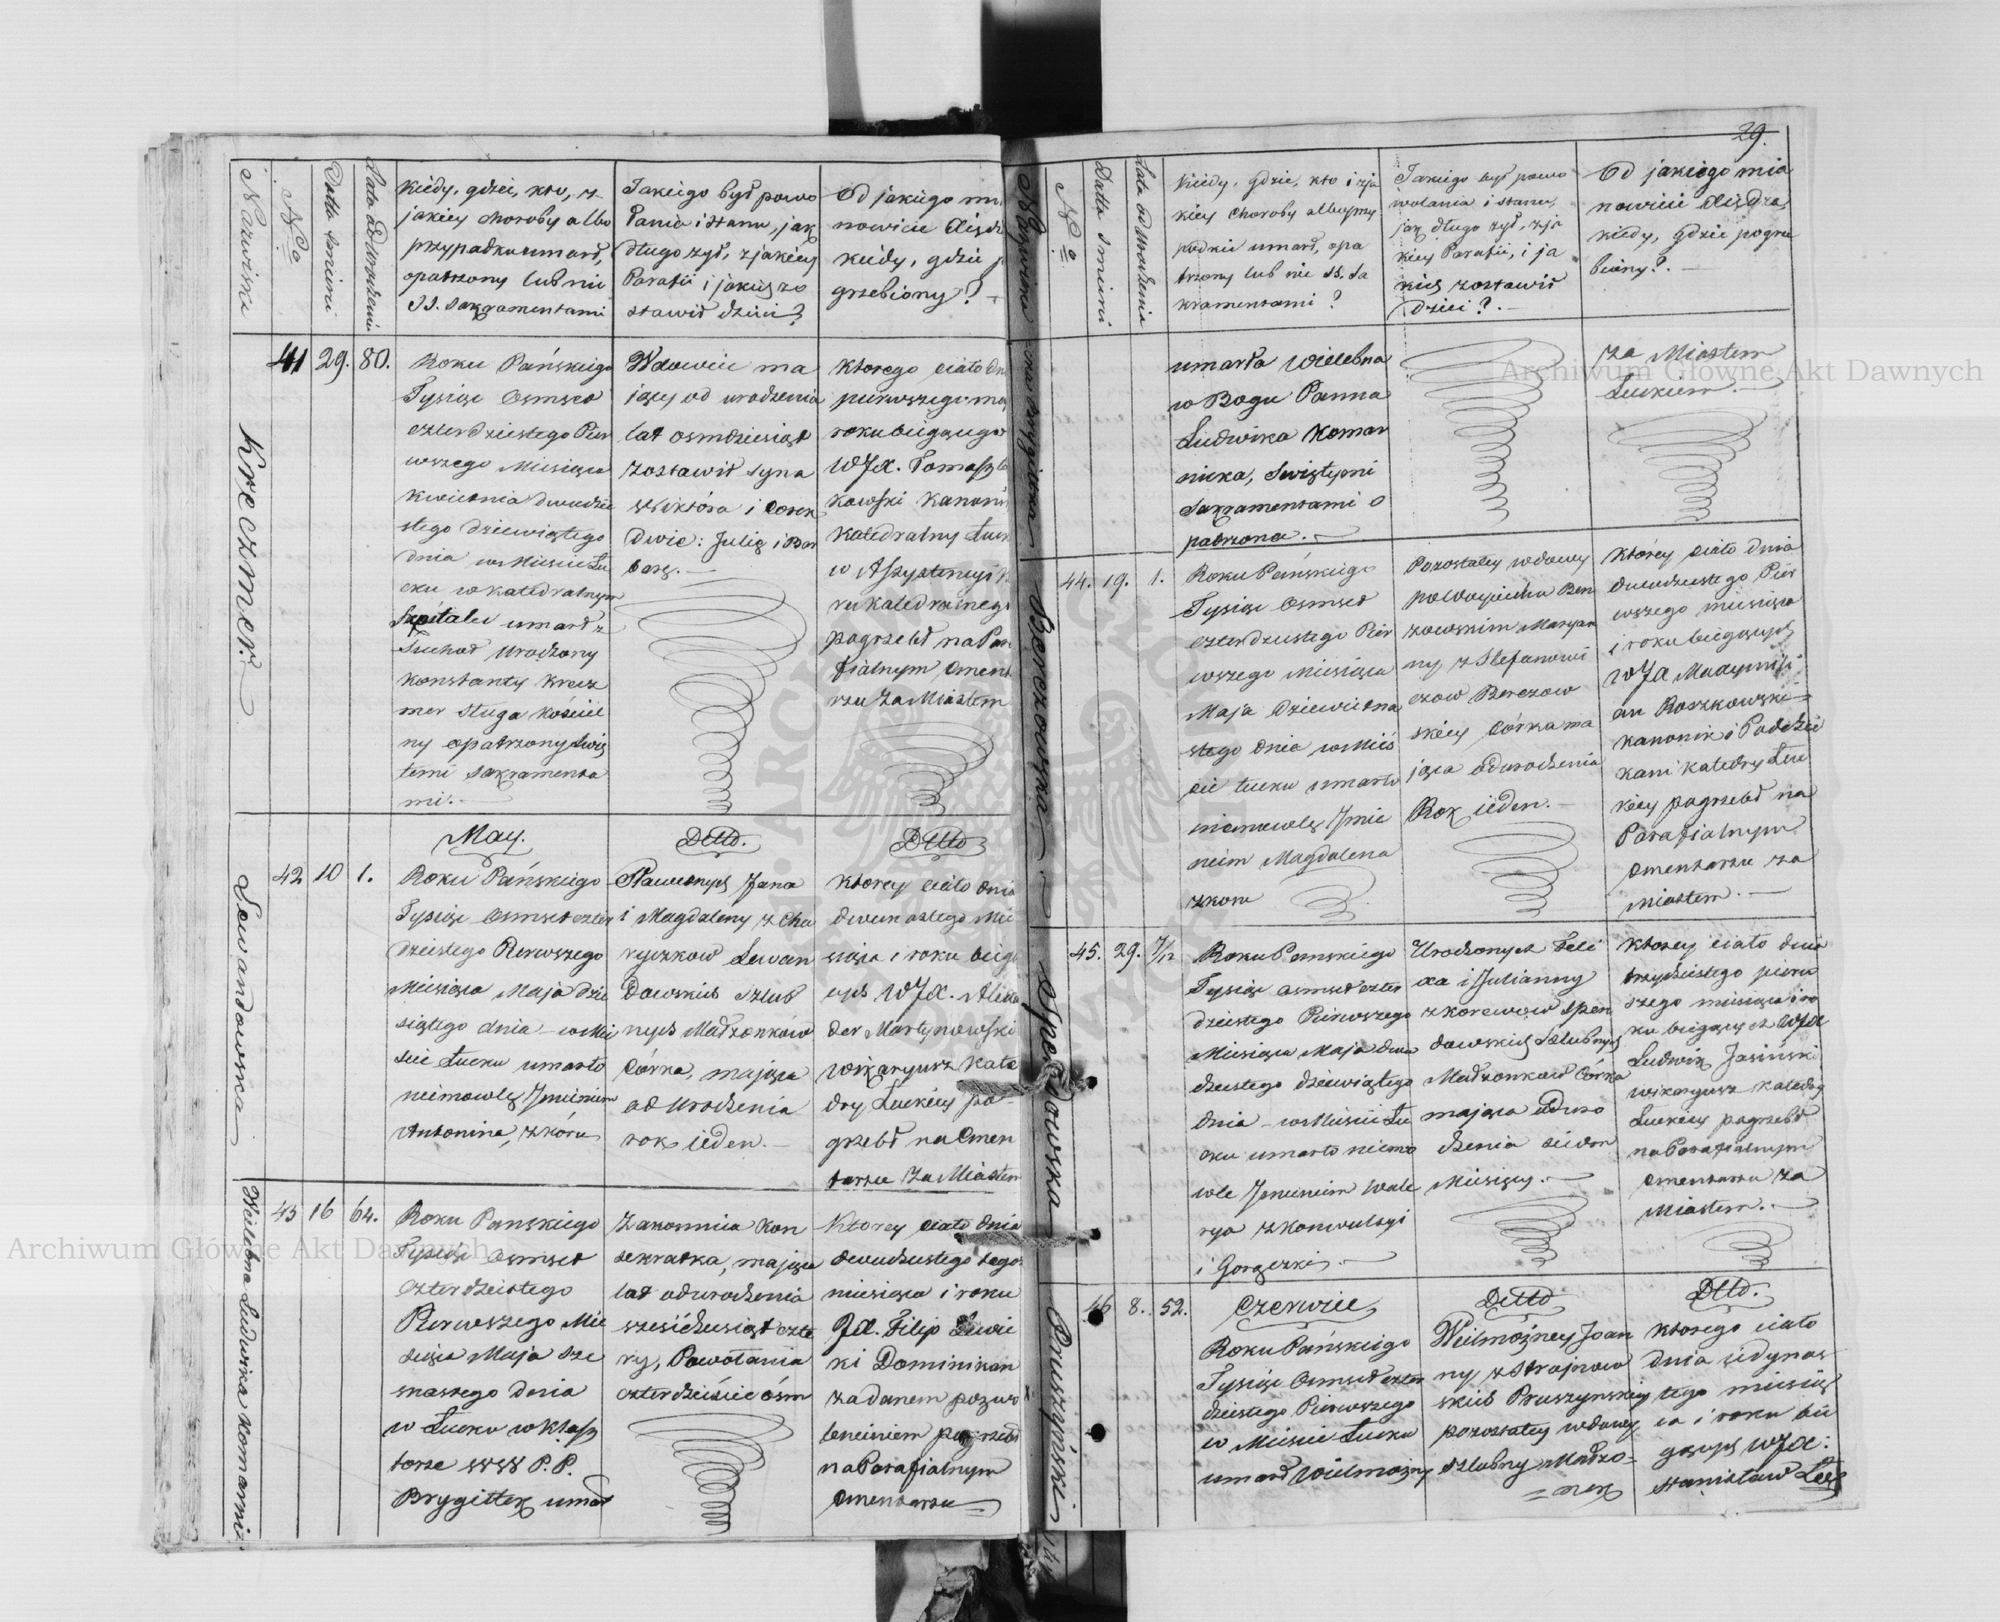 Nazwiska
No
Datta śmierci
Lata od Urodzenia
Kiedy, gdzie, kto, z
jakiey choroby albo
przypadku umarł,
opatrzony lub nie
SS. Sakramentami
Jakiego był powo
łania i stanu, jak
długo żył, z jakiey
Parafii i jakich zo
stawił dzieci?
Od jakiego mia
nowicie Xiędza
kiedy, gdzie po
grzebiony?
Kreczmer.
41
29.
80.
Roku Pańskiego
Tysiąc Osmset
czterdziestego Pier
wszego Miesiąca
Kwietnia dwudzie
stego dziewiątego
dnia w Miescie Łu
cku w Katedralnym
Szpitalu umarł z
Suchot Urodzony
Konstanty Krecz
mer Sługa Kościel
ny opatrzony Swię
temi Sakramenta
mi.
Wdowiec ma
jący od urodzenia
lat osmdziesiąt
zostawił syna
Wiktóra i Corek
Dwie: Julię i Bar
barę.
Ktorego ciało dnia
pierwszego maja
roku bieżącego
WJX. Tomasz
kowski Kanonik
Katedralny Łuc
w Assystencyi
ru Katedralnego
pogrzebł na Para
fialnym Cmenta
rzu za Miastem
May.
Detto.
Detto
Lewandowska
42
10
1.
Roku Pańskiego
Tysiąc Osmset czter
dziestego Pierwszego
Miesiąca Maja dzie
siątego dnia w Mie
scie Łucku umarło
niemowlę Imieniem
Antonina, z kóru
Sławetnych Jana
i Magdaleny z Cha
ryczkow Lewan
dowskich Szlub
nych Małżonków
Córka, mająca
od Urodzenia
rok ieden.
Ktorey ciało dnia
dwunastego Mie
siąca i roku bieżą
cych WJX. Alexan
der Martynowski
Wikaryusz Kate
dry Łuckiey po
grzebł na Cmen
tarzu za Miastem
Wielebna Ludwika Komarnic
43
16
64.
Roku Panskiego
Tysiąc Osmset
czterdziestego
Pierwszego Mie
siąca Maja sze
snastego dnia
w Łucku w Klasz
torze WW P.P.
Brygittek umar
Zakonnica Kon
sekratka, mająca
lat od urodzenia
sześćdziesiąt czte
ry, Powołania
czterdzieście ośm
Ktorey ciało dnia
dwudziestego tego
miesiąca i roku
JX. Filip Lewic
ki Dominikan
za danem pozwo
leniem pogrzebł
na Parafialnym
Cmentarzu
29.
Nazwiska
No
Datta śmierci
Lata od Urodzenia
Kiedy, gdzie, kto i z ja
kiey choroby albo przy
padku umarł, opa
trzony lub nie SS. Sa
kramentami?
Jakiego był powo
wołania i stanu,
jak długo żył, z ja
kiey Parafii, i ja
kich zostawił
Dzieci?
Od jakiego mia
nowicie Xiędza,
kiedy, gdzie pogrze
biony?
umarła Wielebna
w Bogu Panna
Ludwika Komar
nicka, Swiętymi
Sakramentami o
patrzona.
za Miastem
Łuckiem.
Berezowska
44.
19.
1.
Roku Pańskiego
Tysiąc Osmset
czterdziestego Pier
wszego Miesiąca
Maja Dziewietna
stego dnia w Mie
ście Łucku umarło
niemowlę Imie
niem Magdalena
z kon
Pozostałey wdowy
po Woyciechu Ber
zowskim Maryan
ny z Stefanowi
czow Berezow
skiey Córka ma
jąca od urodzenia
Rok ieden.
Którey ciało dnia
dwudziestego Pier
wszego miesiąca
i roku bieżących
WJX Maxymili
an Roszkowski
Kanonik i Podzie
kani Katedry Łuc
kiey pogrzebł na
Parafialnym
Cmentarzu za
miastem.
Spendowska
45.
29.
7/12
Roku Panskiego
Tysiąc Osmset czter
dziestego Pierwszego
Miesiąca Maja dwu
dziestego dziewiątego
dnia w Miescie Łu
cku umarło niemo
wle Imieniem Wale
rya z konwulsyi
i Gorączki.
Urodzonych Feli
xa i Julianny
z Korewow Spen
dowskich Szlubnych
Małżonkow Córka
mająca od uro
dzenia siedm
Miesięcy.
Ktorey ciało dnia
trzydziestego pierw
szego miesiąca i ro
ku bieżących WJX
Ludwik Jasiński
wikaryusz Katedry
Łuckiey pogrzebł
na Parafialnym
Cmentarzu za
Miastem.
Pruszyński
46
8.
52.
Czerwiec
Detto
Detto.
Roku Pańskiego
Tysiąc Osmset czter
dziestego Pierwszego
w Miescie Łucku
umarł Wielmożny
Wielmożney Joan
ny z Strajnow
skich Pruszynskiey
pozostałey wdowy
szlubny Małżo-
nek
Ktorego ciało
dnia jedynas
tego miesią
ca i roku bie
żących WJX:
Stanisław
Archiwum Główne Akt Dawnych
Archiwum Główne Akt Dawnych